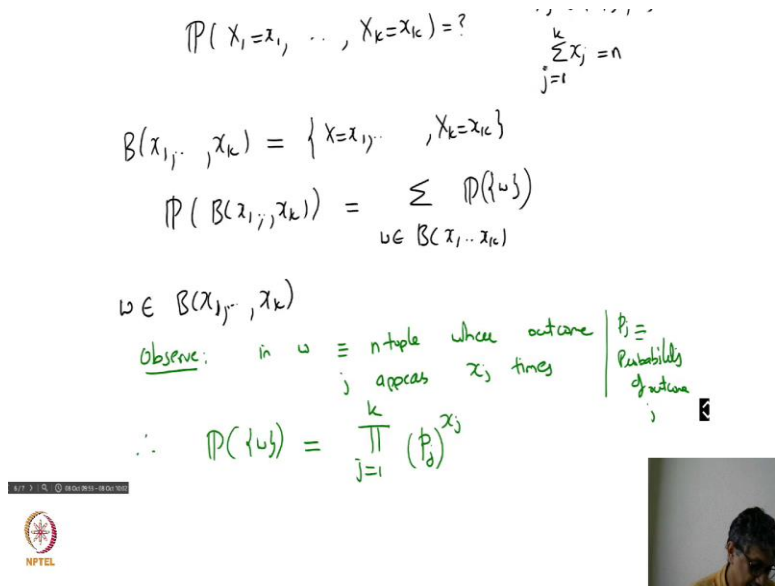 ℙ( X₁=x₁, ‥, X_k=x_k)=?
∑_{j=1}^{k} x_j = n
B(x₁,‥,x_k) = { X=x₁,‥ , X_k=x_k}
ℙ( B(x₁,‥,x_k)) = ∑_{ω∈ B(x₁‥x_k)} ℙ({ω})
ω ∈ B(x₁,‥, x_k)
Observe: in ω ≡ n tuple where outcome
j appears x_j times
p_j ≡
Probability
of outcome
j
∴ ℙ({ω}) = ∏_{j=1}^{k} (p_j)^{x_j}
6/7
08 Oct 09:53 - 08 Oct 10:02
NPTEL